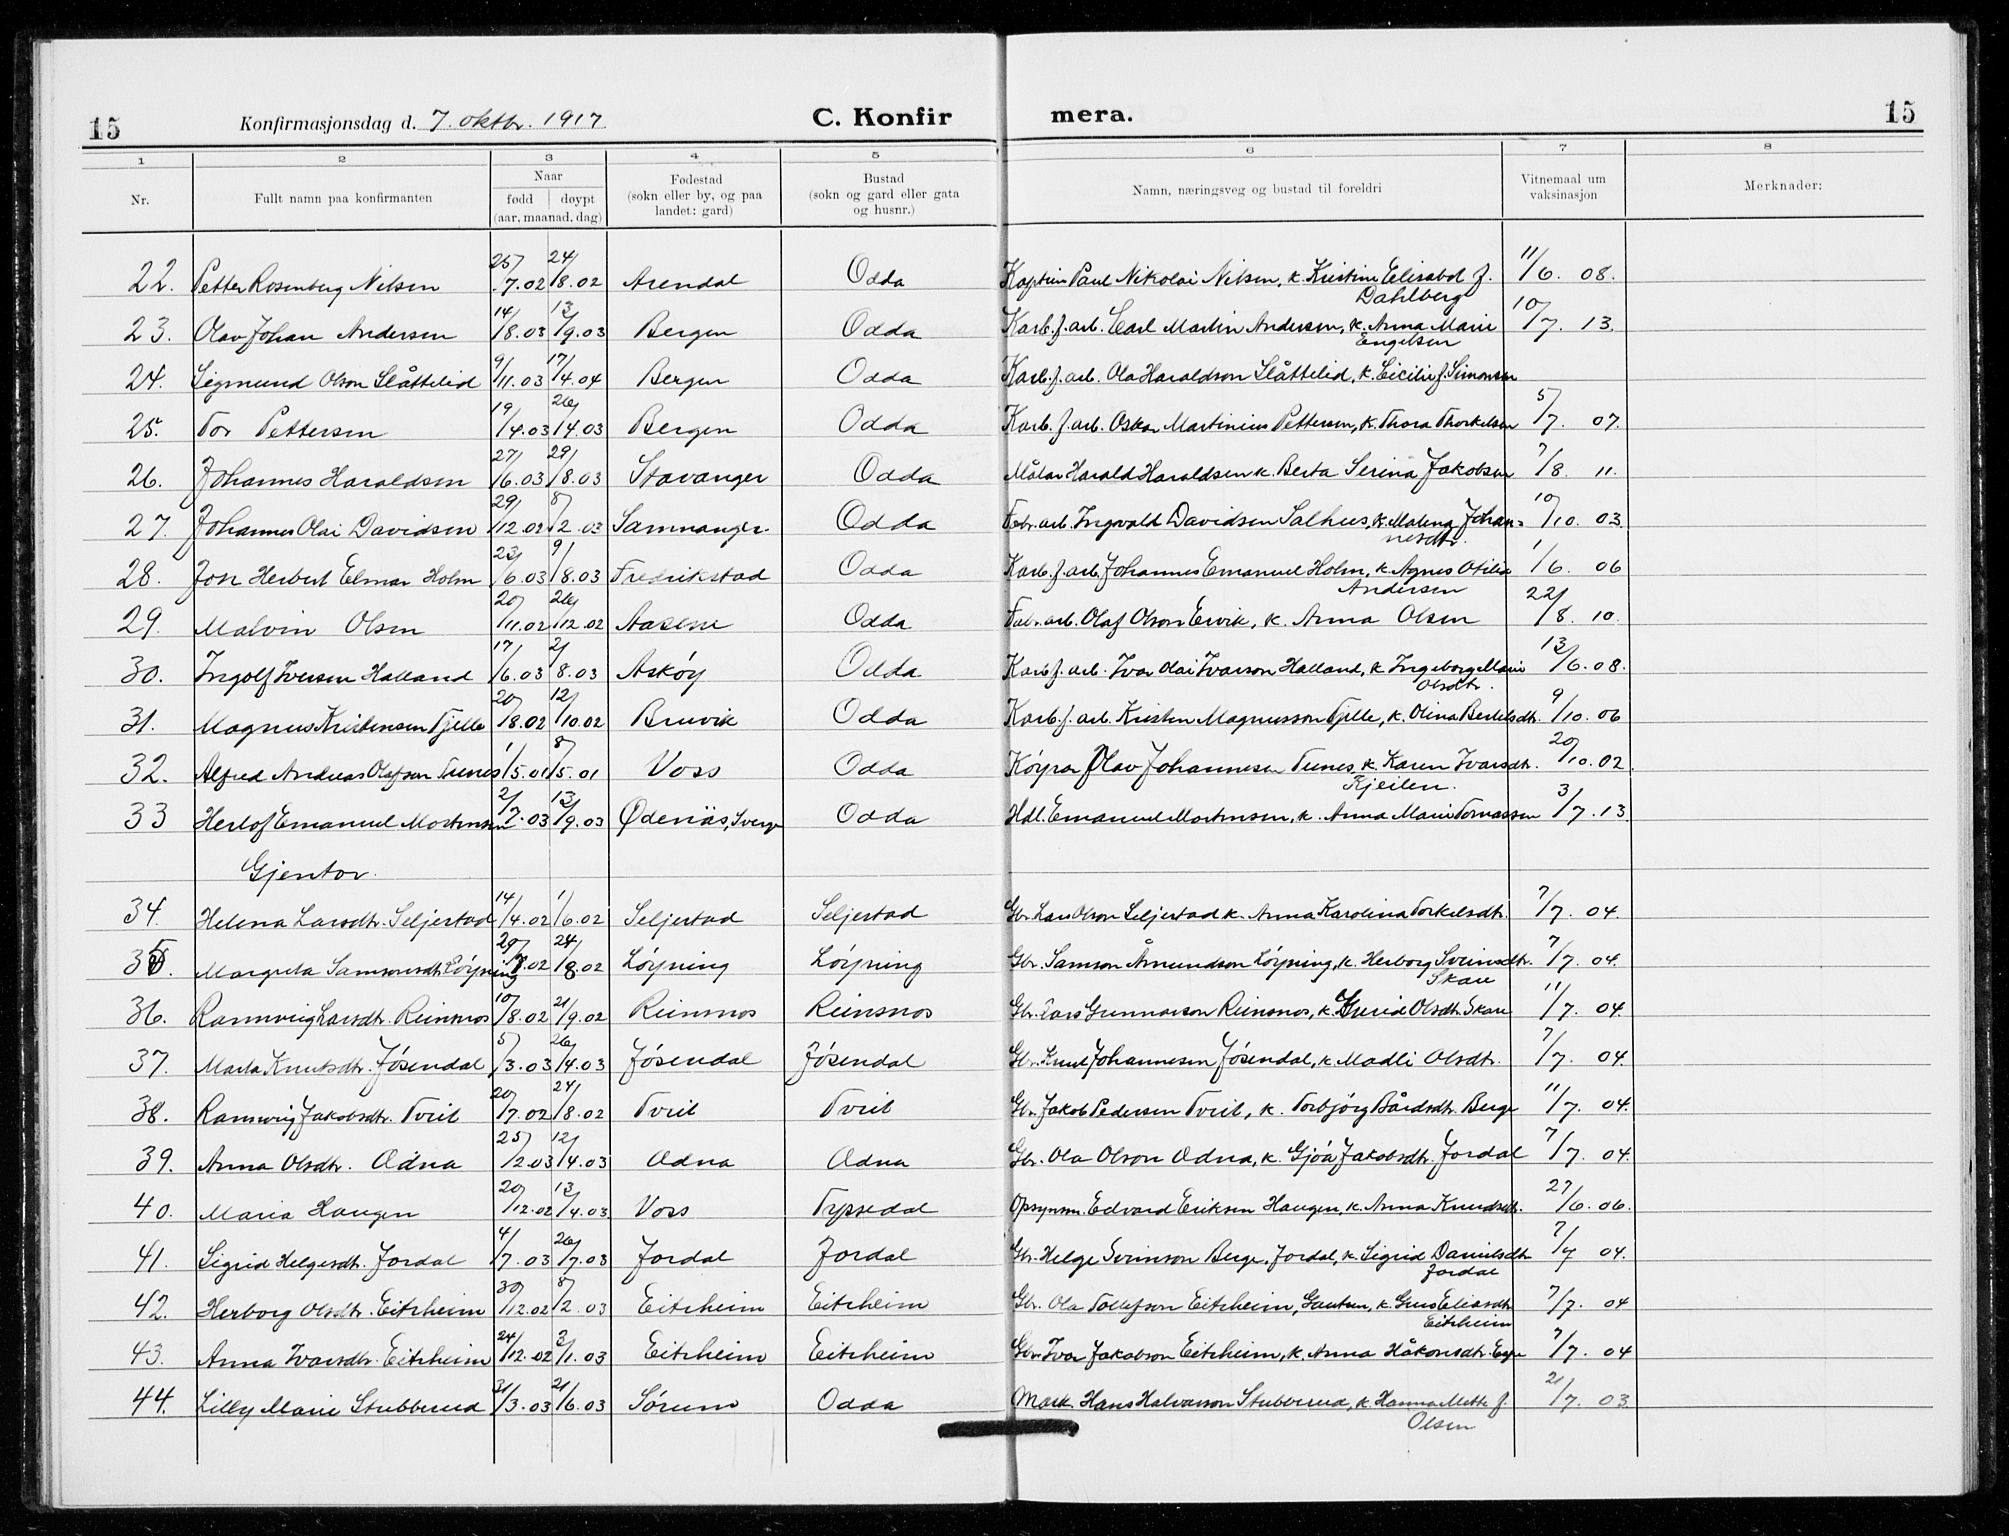 15 Konfirmasjonsdag d. 7. oktbr. 1917 C. Konfir mera. 15
1 2 3 4 5 6 7 8
Nr. Fullt namn paa konfirmanten Naar Fødestad Bustad Namn, næringsveg og bustad til foreldri Vitnemaal um Merknader:
født døypt (sokn eller by, og paa (sokn og gard eller gata vaksinasjon
(aar, maanad, dag) landet: gard) og husnr.)
22. Petter Rosenberg Nilsen 25/7.02 24/8.02 Arendal Odda Kaptein Paul Nikolai Nilsen, k. Kristine Elisabet f. 11/6. 08.
Dahlberg
23. Olav Johan Andersen 14/8.03 13/9.03 Bergen Odda Karb.f.arb. Carl Martin Andersen, k. Anna Marie 10/7. 13.
Engelsen
24. Sigmund Olson Slåttelid 9/11.03 17/4.04 Bergen Odda Karb.f.arb. Ola Haraldson Slåttelid, k. Cicilie f. Simonsen
25. Tor Pettersen 19/4.03 26/4.03 Bergen Odda Karb.f.arb. Oskar Martinius Pettersen, k. Thora Thorkelsen 5/7. 07.
26. Johannes Haraldsen 27/6.03 29/8.03 Stavanger Odda Målar Harald Haraldsen k. Berta Serina Jakobsen 7/8. 11.
27. Johannes Olai Davidsen 29/12.02 8/2.03 Samnanger Odda Fabr.arb. Ingvald Davidsen Salhus, k. Malena Johan= 10/10. 03.
nesdtr.
28. Jon Herbert Elmar Holm 23/6.03 9/8.03 Fredrikstad Odda Karb.f.arb. Johannes Emanuel Holm, k. Agnes Otilie 1/6. 06
Andersen
29. Malvin Olsen 20/11.02 26/12.02 Aasene Odda Fabr.arb. Olaf Olson Ervik, k. Anna Olsen 22/8. 10.
30. Ingolf Iversen Halland 17/6.03 2/8.03 Askøy Odda Karb.f.arb. Ivar Olai Ivarson Halland, k. Ingeborg Marie 13/6. 08.
Olsdtr.
31. Magnus Kristensen Tjelle 20/8.02 12/10.02 Bruvik Odda Karb.f.arb. Kristen Magnusson Tjelle, k. Olina Bertelsdtr. 9/10. 06
32. Alfred Andreas Olafson Tunes 1/5.01 8/5.01 Voss Odda Køyrar Olav Johannesen Tunes, k. Karen Ivarsdtr. 20/10. 02.
Kjeilen.
33 Herlof Emanuel Mortensen 2/7.03 13/9.03 Ødenäs, Sverge Odda Hdl. Emanuel Mortensen, k. Anna Marie Tomassen 3/7. 13.
Gjentor.
34. Helena Larsdtr. Seljestad 14/4.02 1/6.02 Seljestad Seljestad Gbr. Lars Olson Seljestad k. Anna Karolina Torkelsdtr. 7/7. 04.
35. Margreta Samsonsdtr. Løyning 29/7.02 24/8.02 Løyning Løyning Gbr. Samson Åmundson Løyning, k. Herborg Sveinsdtr. 7/7. 04.
Skare
36. Rannveig Larsdtr. Reinsnos 10/8.02 21/9.02 Reinsnos Reinsnos Gbr. Lars Gunnarson Reinsnos, k. Gurid Olsdtr. Skare 11/7. 04.
37. Marta Knutsdtr. Jøsendal 5/3.03 26/4.03 Jøsendal Jøsendal Gbr. Knut Johannesen Jøsendal, k. Madli Olsdtr. 7/7. 04.
38. Ramveig Jakobsdtr. Tveit 20/7.02 24/8.02 Tveit Tveit Gbr. Jakob Pedersen Tveit, k. Torbjørg Bårdsdtr. Berge 11/7. 04.
39. Anna Olsdtr. Ædna 25/2.03 12/4.03 Ædna Ædna Gbr. Ola Olson Ædna, k. Gjøa Jakobsdtr. Jordal 7/7. 04.
40. Maria Haugen 20/12.02 13/4.03 Voss Tyssedal Opsynsm. Edvard Eriksen Haugen, k. Anna Knudsdtr. 27/6. 06.
41. Sigrid Helgesdtr. Jordal 4/7.03 26/7.03 Jordal Jordal Gbr. Helge Sveinson Berge, Jordal, k. Sigrid Danielsdtr 7/7 04.
Jordal
42. Herborg Olsdtr. Eitrheim 30/12.02 8/2.03 Eitrheim Eitrheim Gbr. Ola Tollefson Eitrheim, Gautun, k. Guro Eliasdtr 7/7. 04
Eitrheim
43. Anna Ivarsdtr. Eitrheim 24/12.02 3/1.03 Eitrheim Eitrheim Gbr. Ivar Jakobson Eitrheim, k. Anna Håkonsdtr. Eye 7/7. 04
44. Lilly Marie Stubberud 31/3.03 21/6.03 Sørum Odda Mask. Hans Halvarson Stubberud, k. Hanna Mette f. 21/7. 03
Olsen